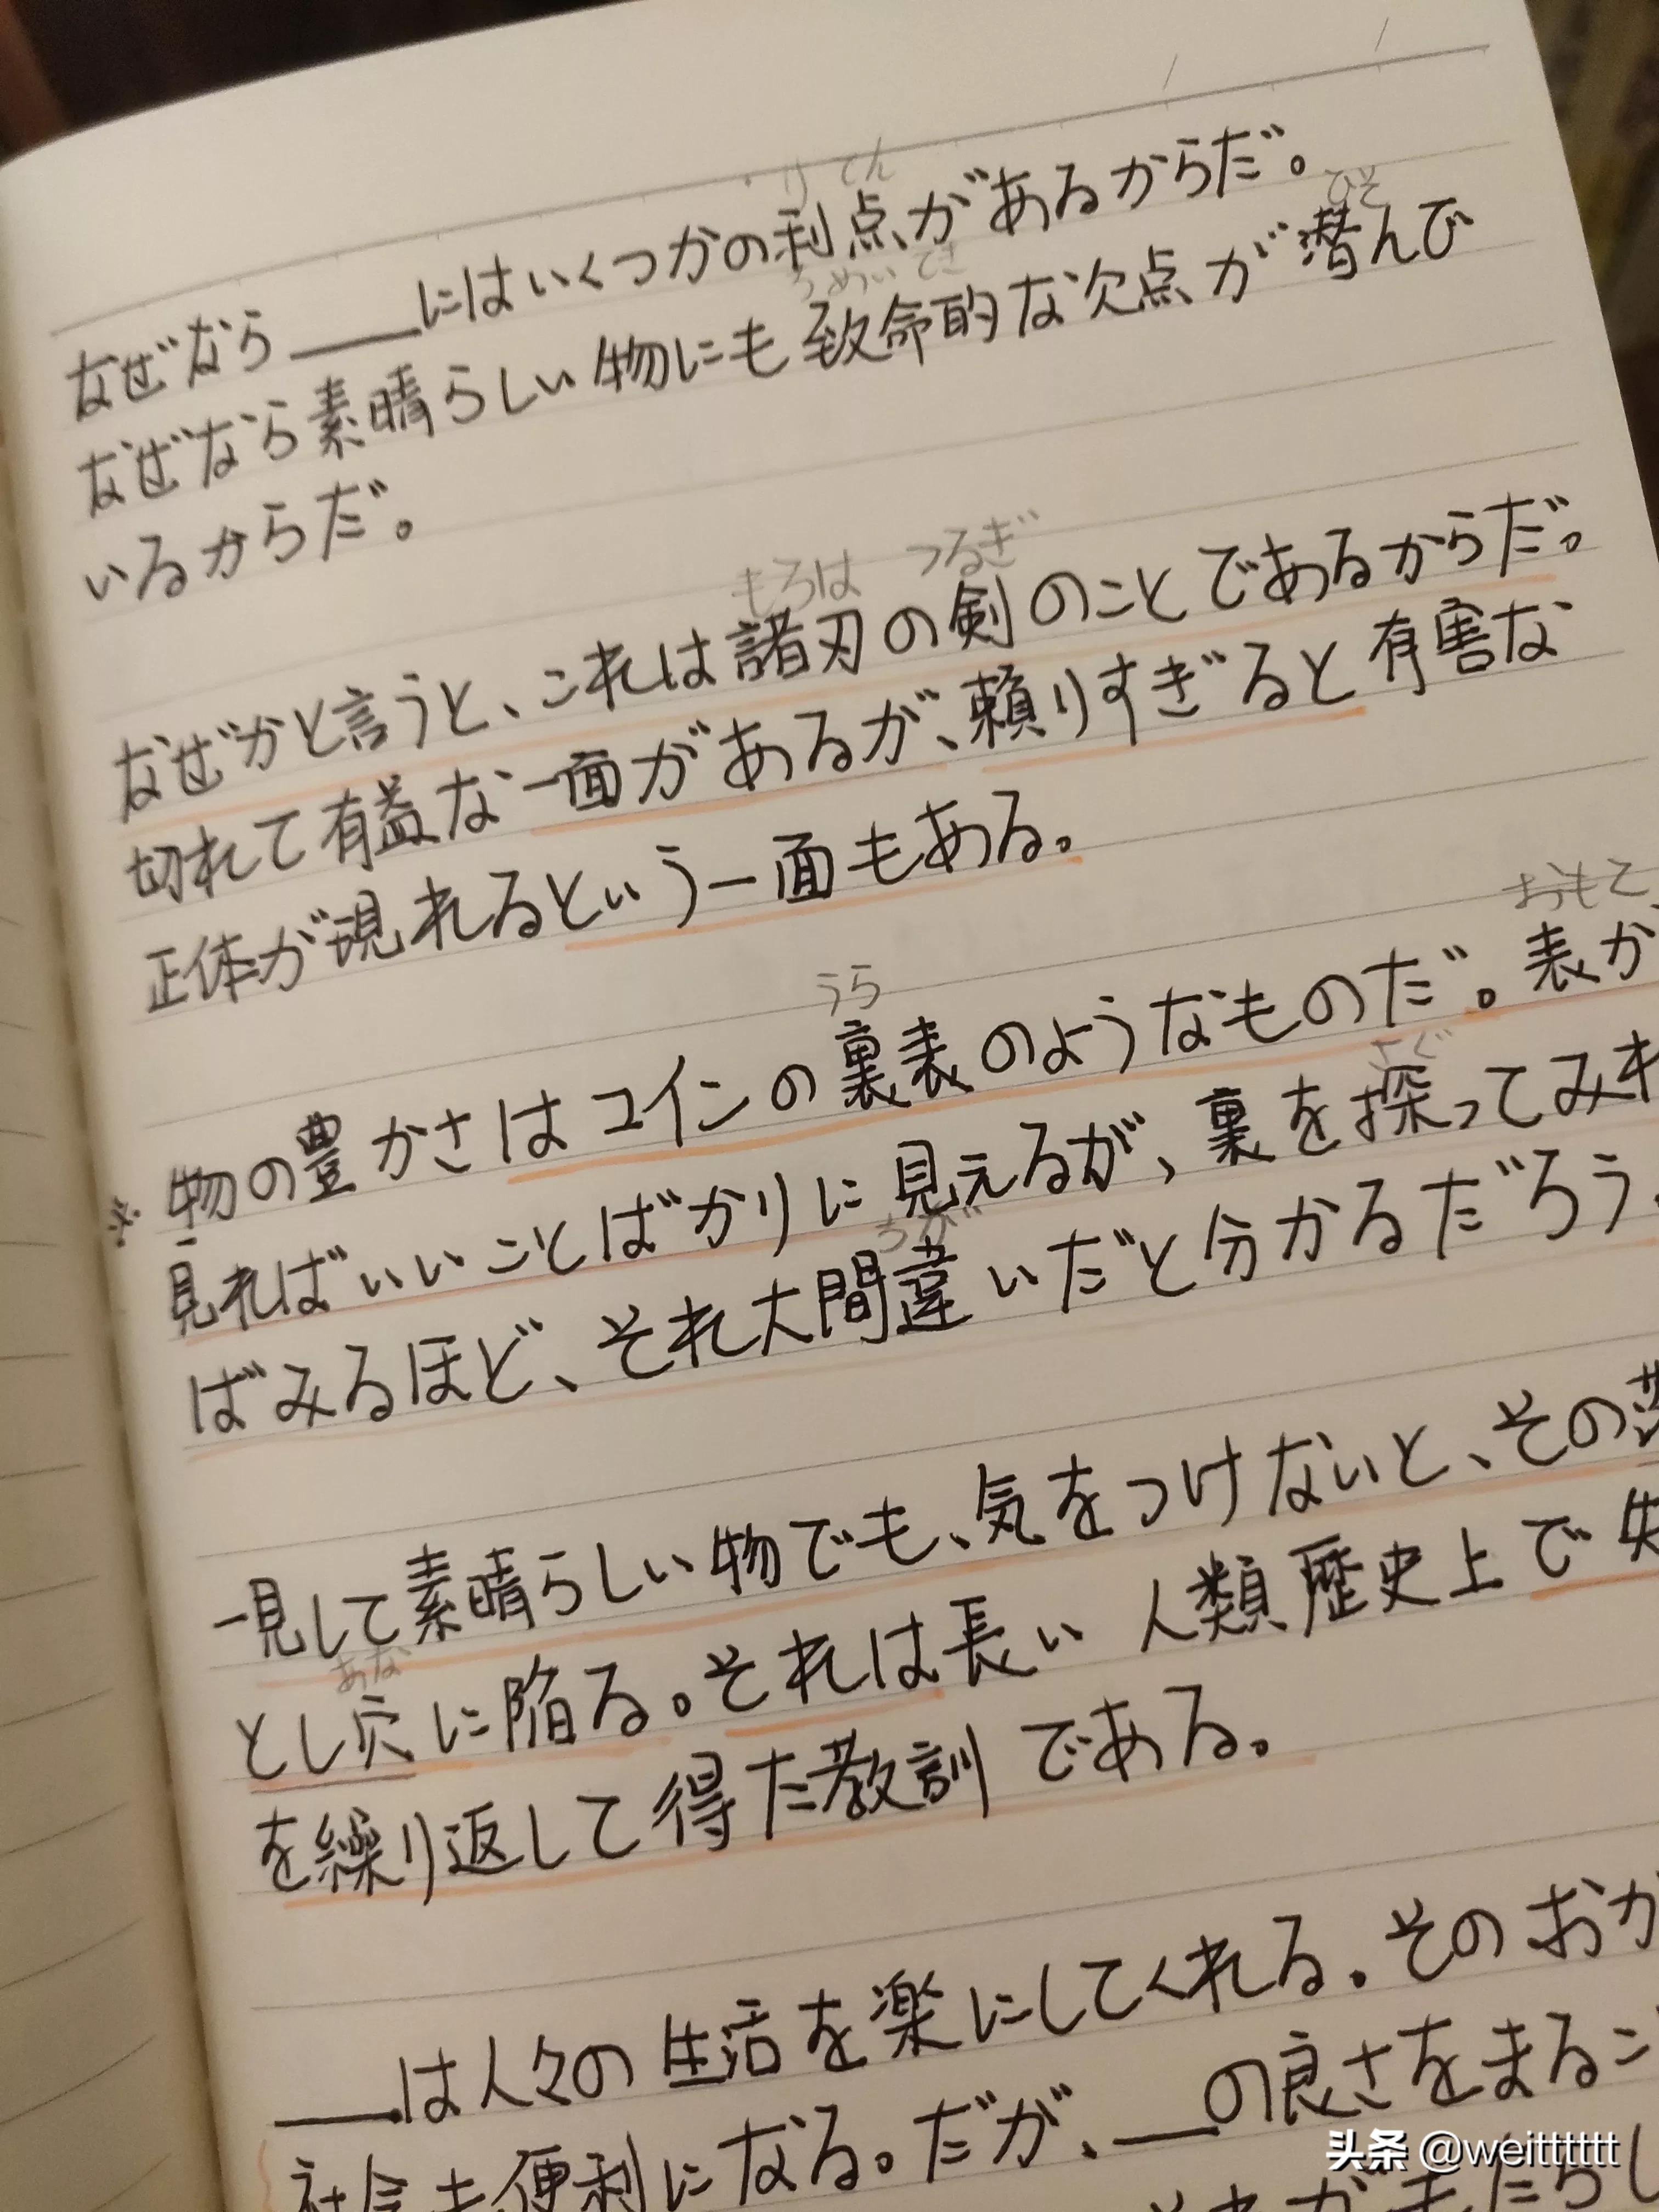 なぜなら___にはいくつかの利点があるからだ。
りてん
なぜなら素晴らしい物にも致命的な欠点が潜んで
ちめいてき
ひそ
いるからだ。
なぜかと言うと、これは諸刃の剣のことであるからだ。
もろは つるぎ
切れて有益な一面があるが、頼りすぎると有害な
正体が現れるという一面もある。
※物の豊かさはコインの裏表のようなものだ。表か
うら
おもて
見ればいいことばかりに見えるが、裏を探ってみれ
さぐ
ばみるほど、それ大間違いだと分かるだろう
ちが
一見して素晴らしい物でも、気をつけないと、その落
とし穴に陥る。それは長い人類歴史上で失
あな
を繰り返して得た教訓である。
___は人々の生活を楽にしてくれる。そのおか
社会も便利になる。だが、___の良さをまるご
頭条 @weitttttt